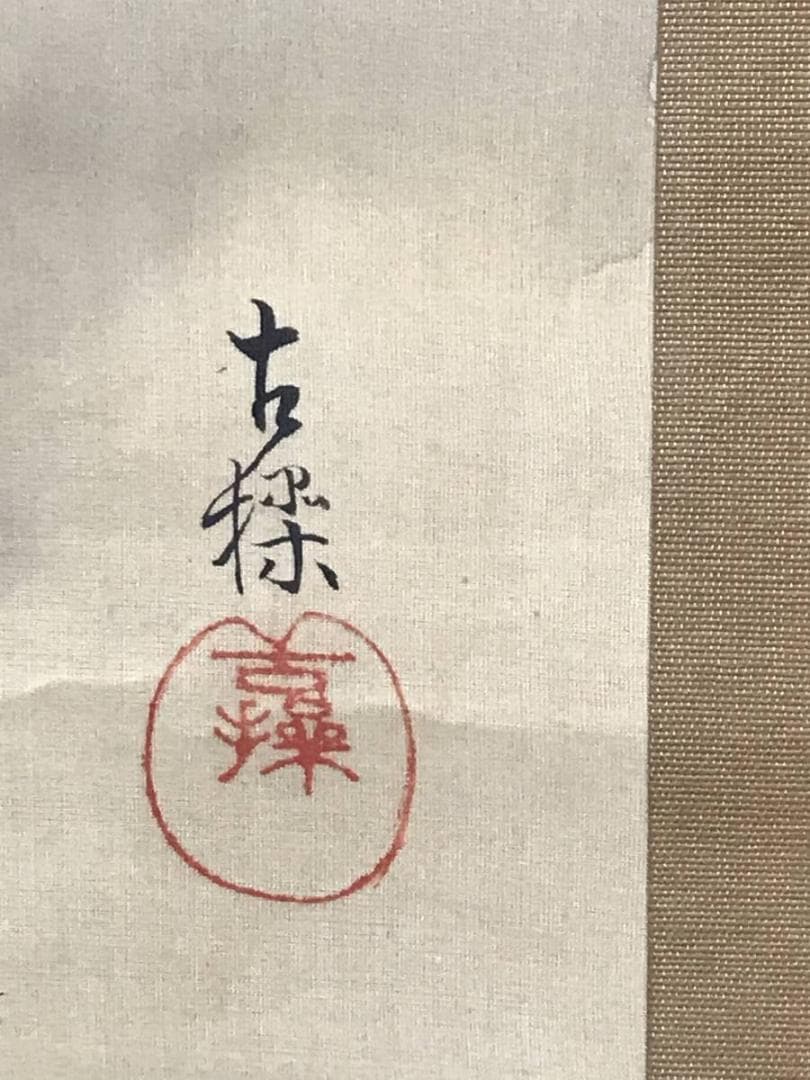 古操
古操